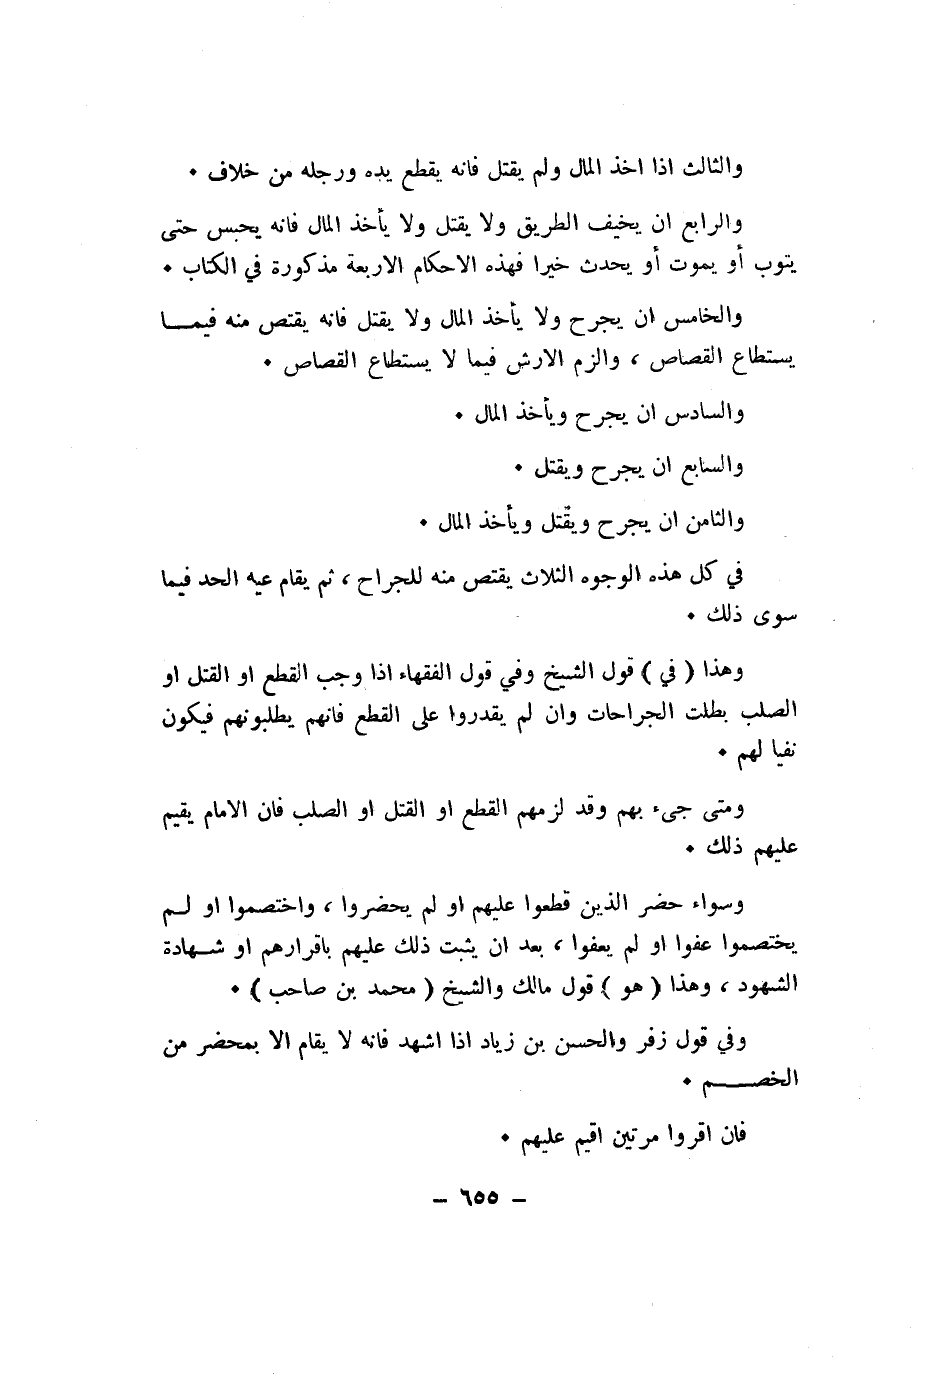 والثالث اذا اخذ المال ولم يقتل فانه يقطع يده ورجله من خلاف •
والرابع ان يخيف الطريق ولا يقتل ولا يأخذ المال فانه يحبس حتى
يتوب أو يموت أو يحدث خيرا فهذه الاحكام الاربعة مذكورة في الكتاب •
والخامس ان يجرح ولا يأخذ المال ولا يقتل فانه يقتص منه فيمـــا
يستطاع القصاص ، والزم الارش فيما لا يستطاع القصاص •
والسادس ان يجرح ويأخذ المال •
والسابع ان يجرح ويقتل •
والثامن ان يجرح ويقتل ويأخذ المال •
في كل هذه الوجوه الثلاث يقتص منه للجراح ، ثم يقام عيه الحد فيما
سوى ذلك •
وهذا ( في ) قول الشيخ وفي قول الفقهاء اذا وجب القطع او القتل او
الصلب بطلت الجراحات وان لم يقدروا على القطع فانهم يطلبونهم فيكون
نفيا لهم •
ومتى جيء بهم وقد لزمهم القطع او القتل او الصلب فان الامام يقيم
عليهم ذلك •
وسواء حضر الذين قطعوا عليهم او لم يحضروا ، واختصموا او لــم
يختصموا عفوا او لم يعفوا ، بعد ان يثبت ذلك عليهم باقرارهم او شــهادة
الشهود ، وهذا ( هو ) قول مالك والشيخ ( محمد بن صاحب ) •
وفي قول زفر والحسن بن زياد اذا اشهد فانه لا يقام الا بمحضر من
الخصـــــم •
فان اقروا مرتين اقيم عليهم •
– ٦٥٥ –